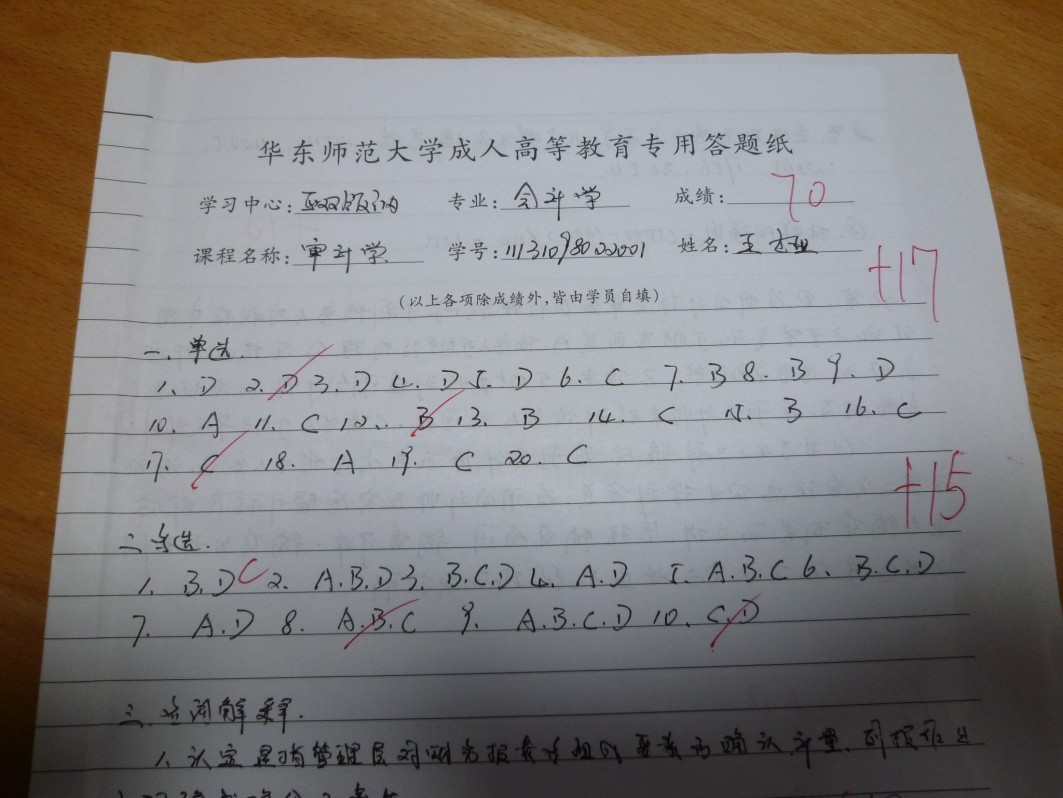 华东师范大学成人高等教育专用答题纸
学习中心: 西双版纳 专业: 会计学 成绩: 70
课程名称: 审计学 学号: 姓名: 王
+17
(以上各项除成绩外,皆由学员自填)
一、单选.
1、D 2、D 3、D 4、D 5、D 6、C 7、B 8、B 9、D
10、A 11、C 12、B 13、B 14、C 15、B 16、C
17、C 18、A 19、C 20、C
+15
二、多选.
1、B.D C 2、A.B.D 3、B.C.D 4、A.D 5、A.B.C 6、B.C.D
7、A.D 8、A.B.C 9、A.B.C.D 10、C.D
三、名词解释.
1、认定是指管理层对财务报表各组成要素的确认、计量、列报作出